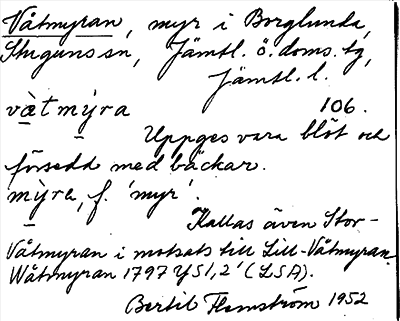 Våtmyran, myr i Borglunda,
Stuguns sn, Jämtl. ö. doms. tg,
Jämtl. l.
vàtmýra 106.
Uppges vara blöt och
försedd med bäckar.
mỳra, f. 'myr'.
Kallas även Stor-
Våtmyran i motsats till Lill-Våtmyran.
Wåtmyran 1797 (LSA).
Bertil Flemström 1952